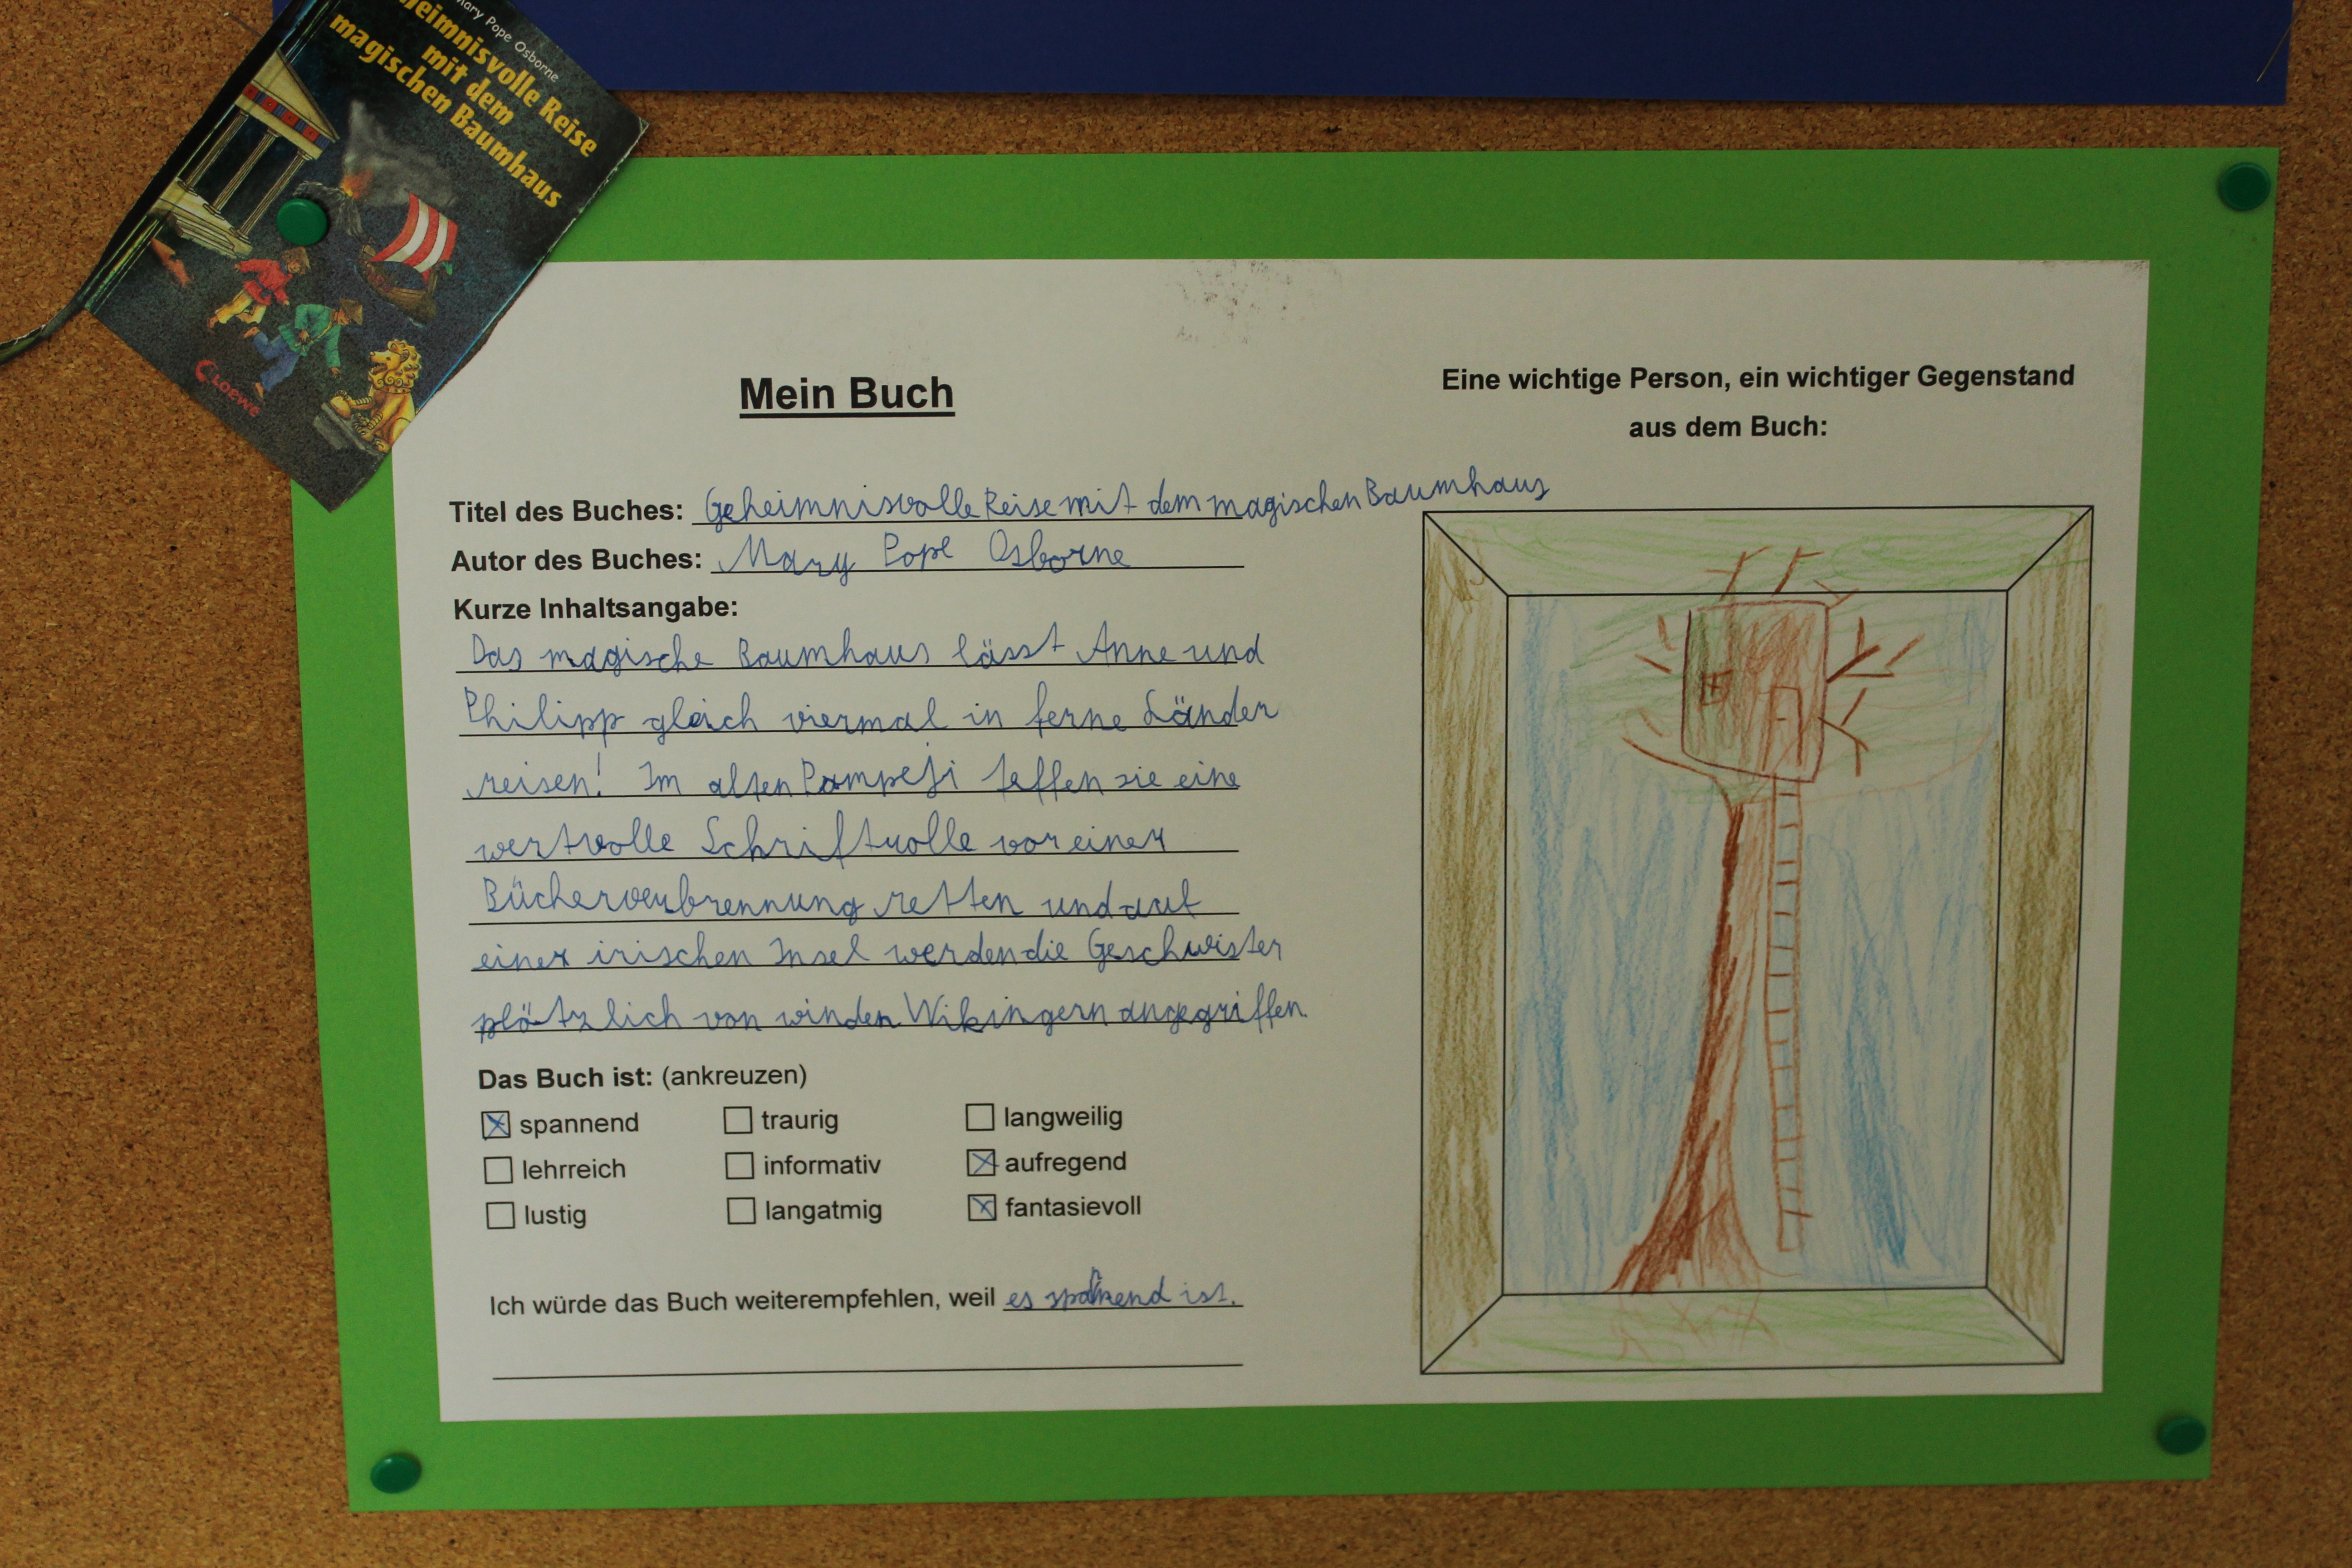 Mary Pope Osborne
heimnisvolle Reise
mit dem
magischen Baumhaus
Loewe
Mein Buch
Titel des Buches: Geheimnisvolle Reise mit dem magischen Baumhaus
Autor des Buches: Mary Pope Osborne
Kurze Inhaltsangabe:
Das magische Baumhaus lässt Anne und
Philipp gleich viermal in ferne Länder
reisen! Im alten Pompeji teffen sie eine
wertvolle Schriftrolle vor einer
Bücherverbrennung retten und auf
einer irischen Insel werden die Geschwister
plötzlich von winden Wikingern angegriffen.
Das Buch ist: (ankreuzen)
spannend traurig langweilig
lehrreich informativ aufregend
lustig langatmig fantasievoll
Ich würde das Buch weiterempfehlen, weil es ist.
Eine wichtige Person, ein wichtiger Gegenstand
aus dem Buch: